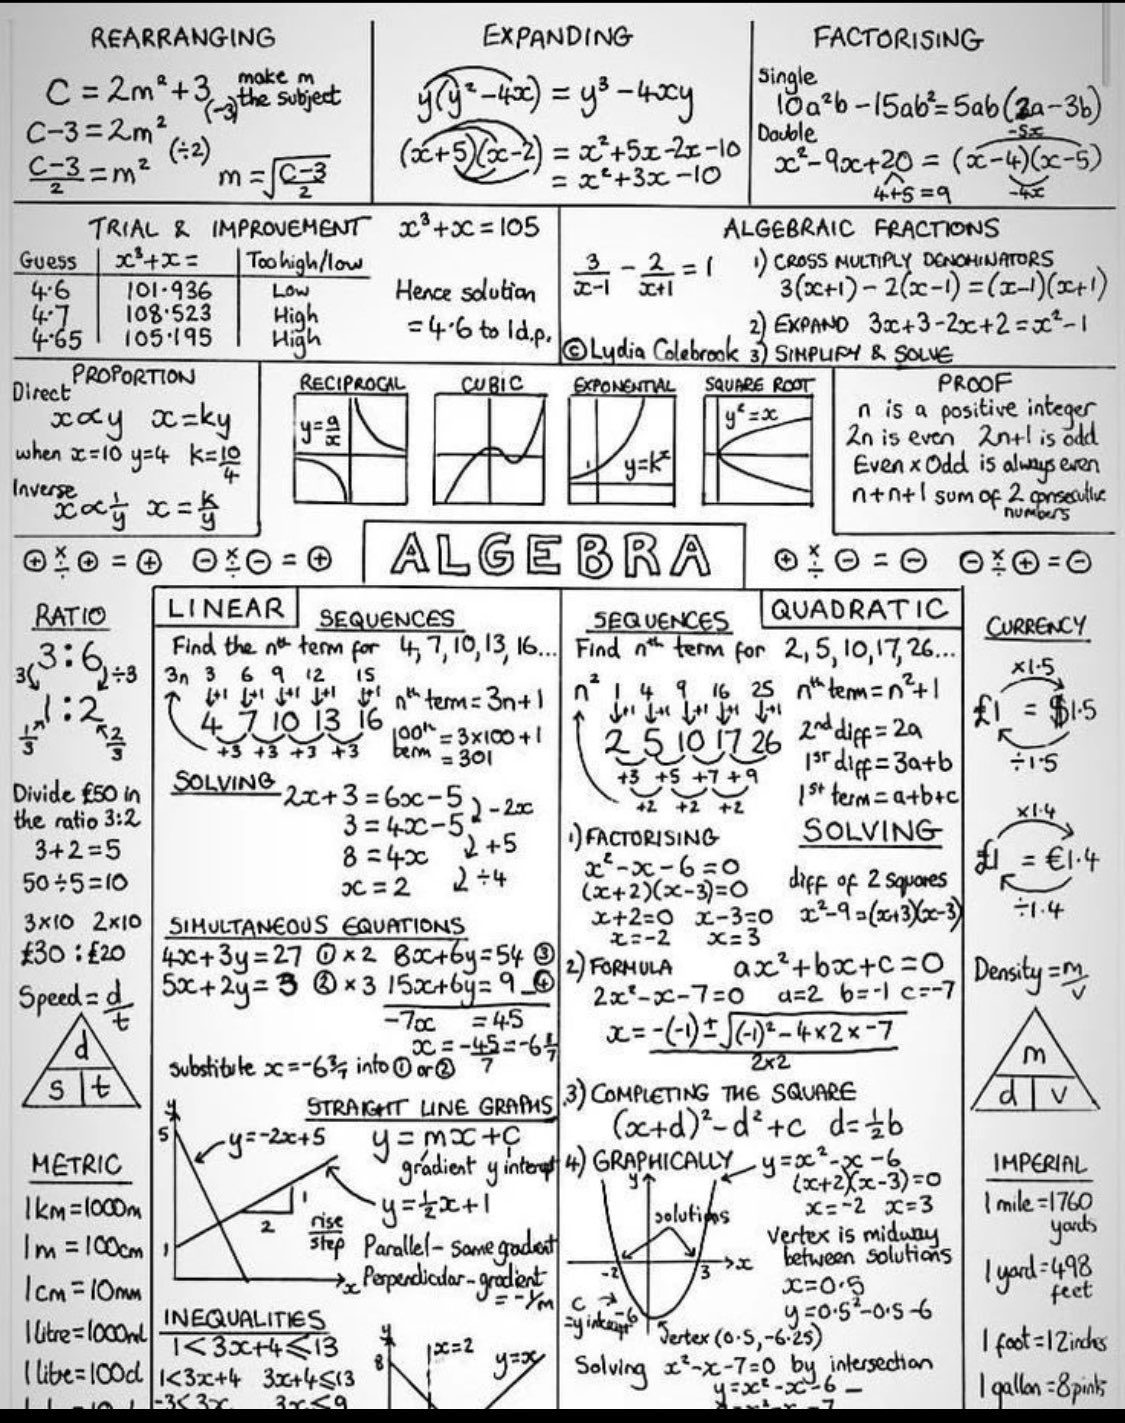 REARRANGING
C = 2m² + 3 make m the subject
(-3)
C-3 = 2m²
(÷2)
C-3/2 = m² m = √(C-3/2)
EXPANDING
y(y² - 4x) = y³ - 4xy
(x+5)(x-2) = x² + 5x - 2x - 10
= x² + 3x - 10
FACTORISING
Single
10a²b - 15ab² = 5ab(2a - 3b)
Double
-5x
x² - 9x + 20 = (x-4)(x-5)
4+5=9 -4x
TRIAL & IMPROVEMENT x³ + x = 105
Guess x³+x= Too high/low
4.6 101.936 Low
4.7 108.523 High
4.65 105.195 High
Hence solution
= 4.6 to 1d.p.
ALGEBRAIC FRACTIONS
3/x-1 - 2/x+1 = 1
1) CROSS MULTIPLY DENOMINATORS
3(x+1) - 2(x-1) = (x-1)(x+1)
2) EXPAND 3x+3-2x+2 = x²-1
3) SIMPLIFY & SOLVE
© Lydia Colebrook
PROPORTION
Direct
x∝y x=ky
when x=10 y=4 k=10/4
Inverse
x∝1/y x=k/y
RECIPROCAL
y=a/x
CUBIC
EXPONENTIAL
1
y=kˣ
SQUARE ROOT
y²=x
PROOF
n is a positive integer
2n is even 2n+1 is odd
Even x Odd is always even
n+n+1 sum of 2 consecutive
numbers
⊕ ×/÷ ⊕ = ⊕ ⊖ ×/÷ ⊖ = ⊕
ALGEBRA
⊕ ×/÷ ⊖ = ⊖ ⊖ ×/÷ ⊕ = ⊖
RATIO
3:6
3 ÷3
1:2
1/3 2/3
Divide £50 in
the ratio 3:2
3+2=5
50÷5=10
3x10 2x10
£30 : £20
Speed = d/t
d
s t
METRIC
1km=1000m
1m=100cm
1cm=10mm
1litre=1000ml
1litre=100cl
LINEAR
SEQUENCES
Find the nth term for 4, 7, 10, 13, 16...
3n 3 6 9 12 15
↓+1 ↓+1 ↓+1 ↓+1 ↓+1
4 7 10 13 16
+3 +3 +3 +3
nth term = 3n+1
100th term = 3x100+1
= 301
SOLVING
2x+3 = 6x-5
-2x
3 = 4x-5
+5
8 = 4x
÷4
x = 2
SIMULTANEOUS EQUATIONS
4x+3y=27 ① x2 8x+6y=54 ③
5x+2y=3 ② x3 15x+6y=9 ④
-7x = 45
x = -45/7 = -6 3/7
substitute x=-6 3/7 into ① or ②
STRAIGHT LINE GRAPHS
y
5
y=-2x+5
y = mx+c
gradient y intercept
y = ½x+1
1
2
rise
step
1
x
Parallel - same gradient
Perpendicular - gradient
= -1/m
INEQUALITIES
1<3x+4≤13
1<3x+4 3x+4≤13
-3<3x 3x≤9
y
8
x=2
y=x
QUADRATIC
SEQUENCES
Find nth term for 2, 5, 10, 17, 26...
n² 1 4 9 16 25
↓+1 ↓+1 ↓+1 ↓+1 ↓+1
2 5 10 17 26
+3 +5 +7 +9
+2 +2 +2
nth term = n²+1
2nd diff = 2a
1st diff = 3a+b
1st term = a+b+c
SOLVING
1) FACTORISING
x²-x-6=0
(x+2)(x-3)=0
x+2=0 x-3=0
x=-2 x=3
diff of 2 squares
x²-9=(x+3)(x-3)
2) FORMULA ax²+bx+c=0
2x²-x-7=0 a=2 b=-1 c=-7
x = -(-1)±√((-1)²-4x2x-7)
2x2
3) COMPLETING THE SQUARE
(x+d)²-d²+c d=½b
4) GRAPHICALLY
y=x²-x-6
(x+2)(x-3)=0
x=-2 x=3
y
solutions
-2 3 x
Vertex is midway
between solutions
x=0.5
y=0.5²-0.5-6
c → -6
=y intercept
Vertex (0.5,-6.25)
Solving x²-x-7=0 by intersection
y=x²-x-6 -
CURRENCY
x1.5
£1 = $1.5
÷1.5
x1.4
£1 = €1.4
÷1.4
Density = m/v
m
d v
IMPERIAL
1 mile=1760
yards
1 yard=498
feet
1 foot=12inches
1 gallon=8pints